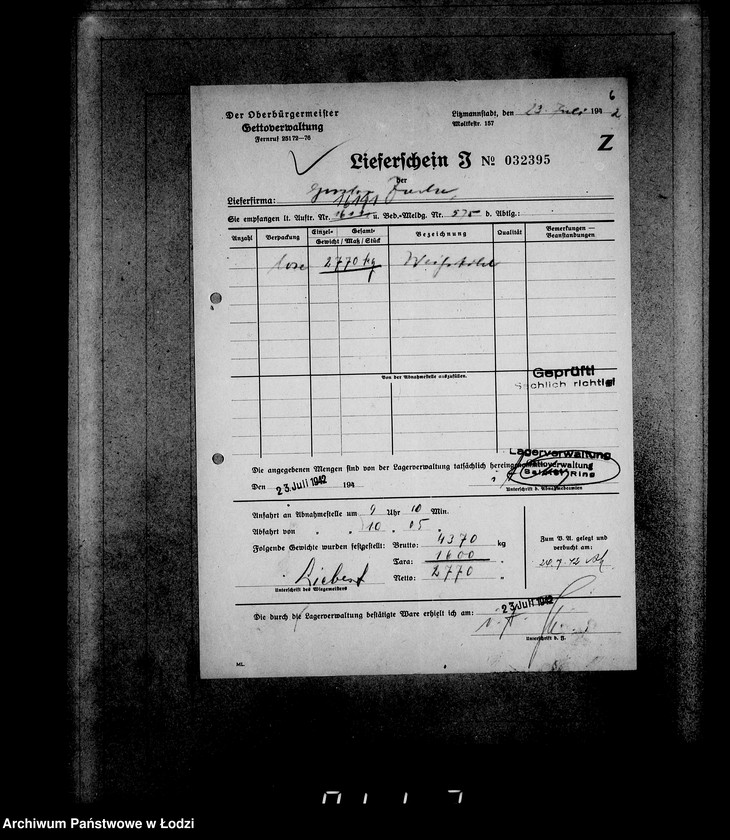 6
Der Oberbürgermeister
Gettoverwaltung
Fernruf 25172—76
Litzmannstadt, den 23. Juli 1942
Moltkestr. 157
Z
Lieferschein I № 032395
der
Lieferfirma:
16191
Sie empfangen lt. Auftr. Nr. u. Bed.-Meldg. Nr. 575 d. Abtlg.:
Anzahl Verpackung Einzel- Gesamt- Gewicht / Maß / Stück Bezeichnung Qualität Bemerkungen — Beanstandungen
lose 2770 kg Weißkohl
Von der Abnahmestelle auszufüllen.
Geprüft!
Sachlich richtig!
Lagerverwaltung
Gettoverwaltung
Baluter Ring
Die angegebenen Mengen sind von der Lagerverwaltung tatsächlich
Den 23. Juli 1942 194
Unterschrift d. Abnahmebeamten
Anfahrt an Abnahmestelle um 9 Uhr 10 Min.
Abfahrt von " " 10 " 05 "
Folgende Gewichte wurden festgestellt: Brutto: 4370 kg
Tara: 1600 "
Netto: 2770 "
Liebert
Unterschrift des Wiegemeisters
Zum B. A. gelegt und
verbucht am:
Die durch die Lagerverwaltung bestätigte Ware erhielt ich am: 23. Juli 1942
Unterschrift d. J.
ML.
0117
Archiwum Państwowe w Łodzi